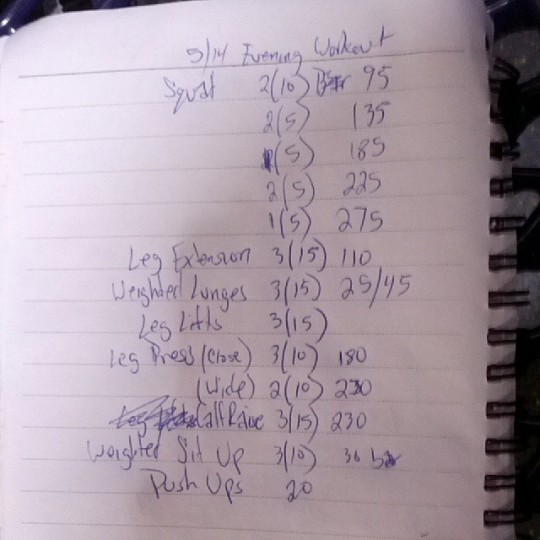 9/14 Evening Workout
Squat 2(10) 95
2(5) 135
(5) 185
2(5) 225
1(5) 275
Leg Extension 3(15) 110
Weighted Lunges 3(15) 25/45
Leg Lifts 3(15)
Leg Press (Close) 3(10) 180
(Wide) 2(10) 230
Calf Raise 3(15) 230
Weighted Sit Up 3(10) 30
Push Ups 20